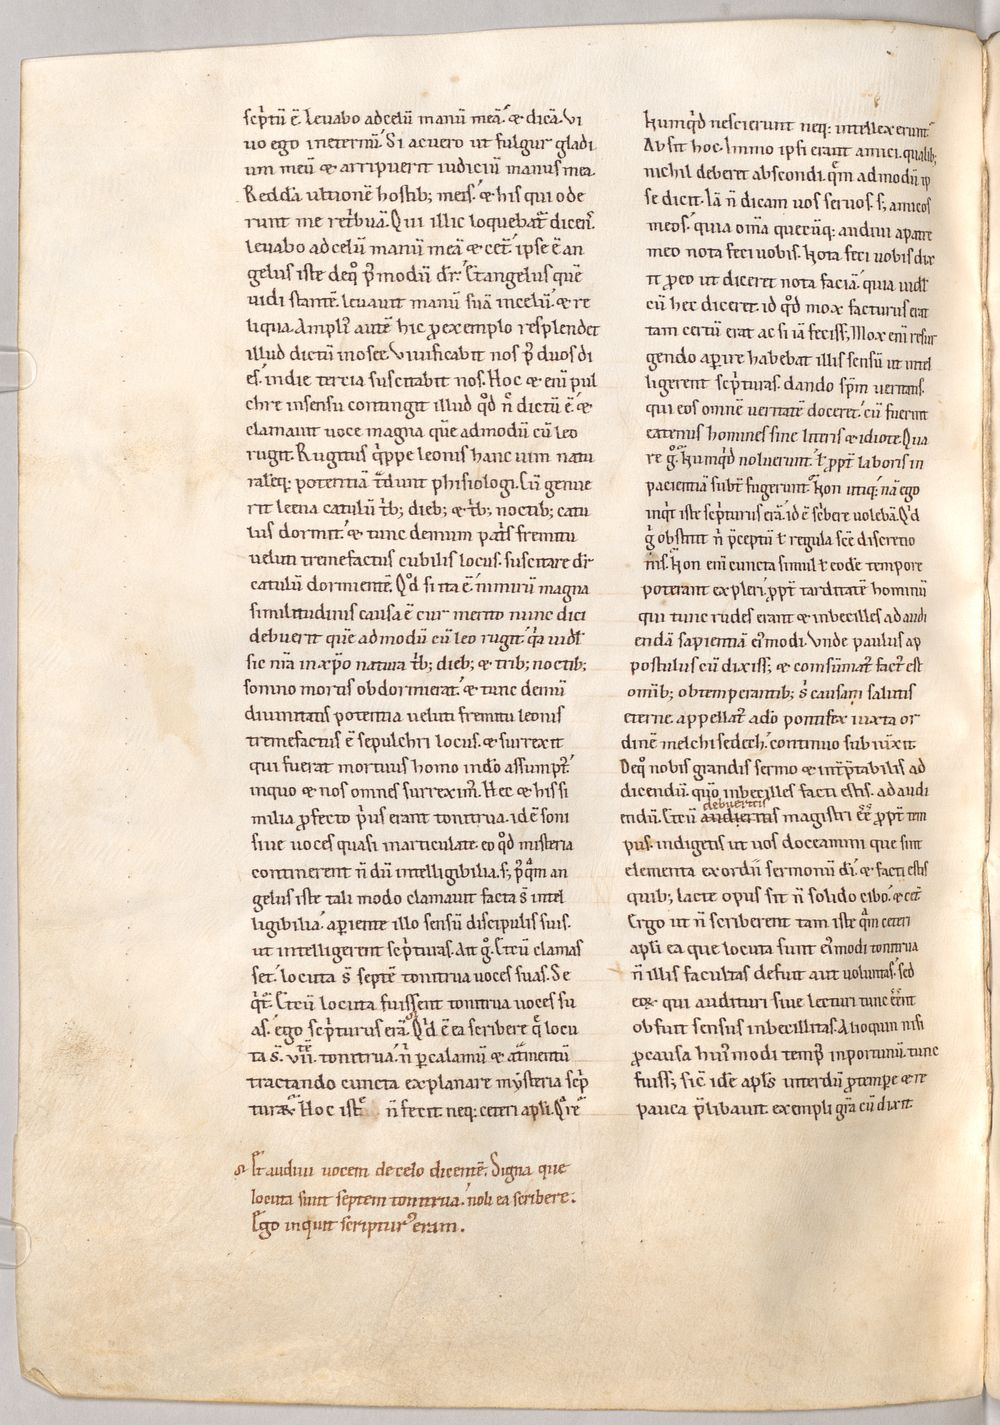 scptū ē. Leuabo ad celū manū meā. & dicā. Vi
uo ego in eternū. Si acuero ut fulgur gladi
um meū & arripuerit iudiciū manus mea.
Reddā ultionē hostib; meis. & his qui ode
runt me retbuā. Qui illic loquebat dicens.
Leuabo ad celū manū meā & cet. ipse ē an
gelus iste de q° p modū dr. Et angelus quē
uidi stantē. leuauit manū suā in celū. & re
liqua. Ampli autē hic p exemplo resplendet
illud dictū in osee. Viuificabit nos p duos di
es. in die tercia suscitabit nos. Hoc & enī pul
chre in sensu contingit illud qd n dictū ē. &
clamauit uoce magna quē admodū cū leo
rugit. Rugitus qppe leonis hanc uim natu
raleq: potentiā tdunt phisiologi. Cū genue
rit leena catulū tb; dieb; & tb; noctib; catu
lus dormit. & tunc demum patis fremitu
ueluti tremefactus cubilis locus. suscitare dr
catulū dormientē. Qd si ita ē. nimirū magna
similitudinis causa ē cur merito nunc dici
debuerit quē admodū cū leo rugit. qa uidl
sic nra in xpo natura tb; dieb; & trib; noctib;
somno mortis obdormierat. & tunc demū
diuinitatis potentia ueluti fremitu leonis
tremefactus ē sepulchri locus. & surrexit
qui fuerat mortuus homo in do assumpt.
in quo & nos omnes surreximˀ. Hec & his si
milia pfecto pus erant tonitrua. id ē soni
siue uoces quasi inarticulate. eo qd misteria
continerent n dū intelligibilia. s; p qam an
gelus iste tali modo clamauit facta s intel
ligibilia. aperiente illo sensū discipulis suis.
ut intelligerent scpturas. Ait g°. Et cū clamas
set. locuta s septē tonitrua uoces suas. Se
qt. Et cū locuta fuissent tonitrua uoces su
as. ego scpturus erā. Qd ē ea scribere q locu
ta s. VII te tonitrua. n p calamū & atmentū
tractando cuncta explanare mysteria scp
turaꝝ. Hoc iste n fecit neq: ceteri apli. Qre
Et audiui uocem de celo dicentē. Signa que
locuta sunt septem tonitrua. noli ea scribere.
Ego inquit scripturˀ eram.
Numqd nescierunt neq: intellexerunt
Absit hoc. Immo ipsi erant amici. qualib;
nichil deberet abscondi. qm admodū ip
se dicit. Iā n dicam uos seruos. s; amicos
meos. quia omia quecūq: audiui a patre
meo nota feci uobis. Nota feci uobis dix
it p eo ut diceret nota faciā. quia uidl
cū hec diceret. id qd mox facturus erat
tam certū erat ac si iā feciss; Mox enī resur
gendo apire habebat illis sensū ut intel
ligerent scpturas. dando spm ueritatis.
qui eos omnē ueritatē doceret. cū fuerint
eatenus homines sine literis & idiote. Qua
re g°. Numqd noluerunt. l ppt laboris in
pacientiā subt fugerunt. Non utiq: nā ego
inqt iste scpturus erā. id ē scbere uolebā. Qd
g obstitit n pceptū l regula sce discretio
nis. Non enī cuncta simul l eodē tempore
poterant expleri. ppt tarditatē hominū
qui tunc rudes erant & inbecilles ad audi
endā sapientiā eiˀmodi. Vnde paulus ap
postulus cū dixiss; & consūmat fact est
omib; obtemperantib; s causam salutis
eterne. appellat a do pontifex iuxta or
dinē melchisedech. continuo subiūxit.
De q° nobis grandis sermo & intptabilis ad
dicendū. quo inbecilles facti estis. ad audi
endū. Et cū debueritis magistri ee ppt tem
pus. indigetis ut uos doceamini que sint
elementa exordii sermonū di. & facti estis
quib; lacte opus sit n solido cibo. & cet
Ergo ut n scriberent tam iste qm ceteri
apli ea que locuta sunt eiˀmodi tonitrua
n illis facultas defuit aut uoluntas. sed
eoꝝ qui audituri siue lecturi tunc eent
obfuit sensus inbecillitas. Alioquin nisi
p causa huiˀmodi tempˀ inportunū tunc
fuiss; sic idē apls interdū p tempe & re
pauca plibauit. exempli gra cū dixit.